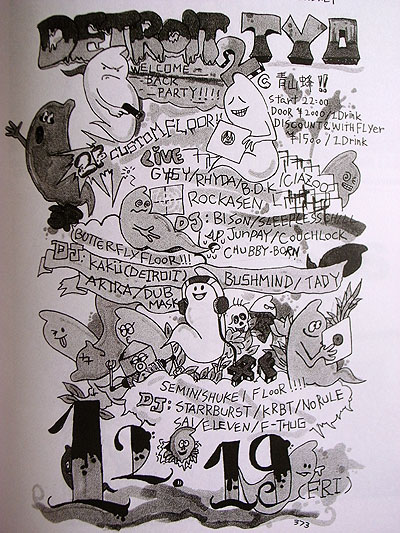 DETROIT, TYO
WELCOME
BACK
PARTY!!!!
@青山蜂!!
Start 22:00
DOOR ¥2000/1Drink
DISCOUNT&WITH FLYER
¥1500/1Drink
2F CUSTOM FLOOR!!
LIVE
GYSY/RHYDA/B.D.K/CIAZOO
ROCKASEN
DJ: BISON/SLEEPLESS
JUNPAY/COUCHLOCK
CHUBBY-BORN
BUTTERFLY FLOOR!!!
DJ: KAKU(DETROIT)/BUSHMIND/TADY
AKIRA/DUB
MASK
SEMINISHUKEI FLOOR!!!!
DJ: STARRBURST/KRBT/NO RULE
SAI/ELEVEN/F-THUG
12.19
(FRI)
373